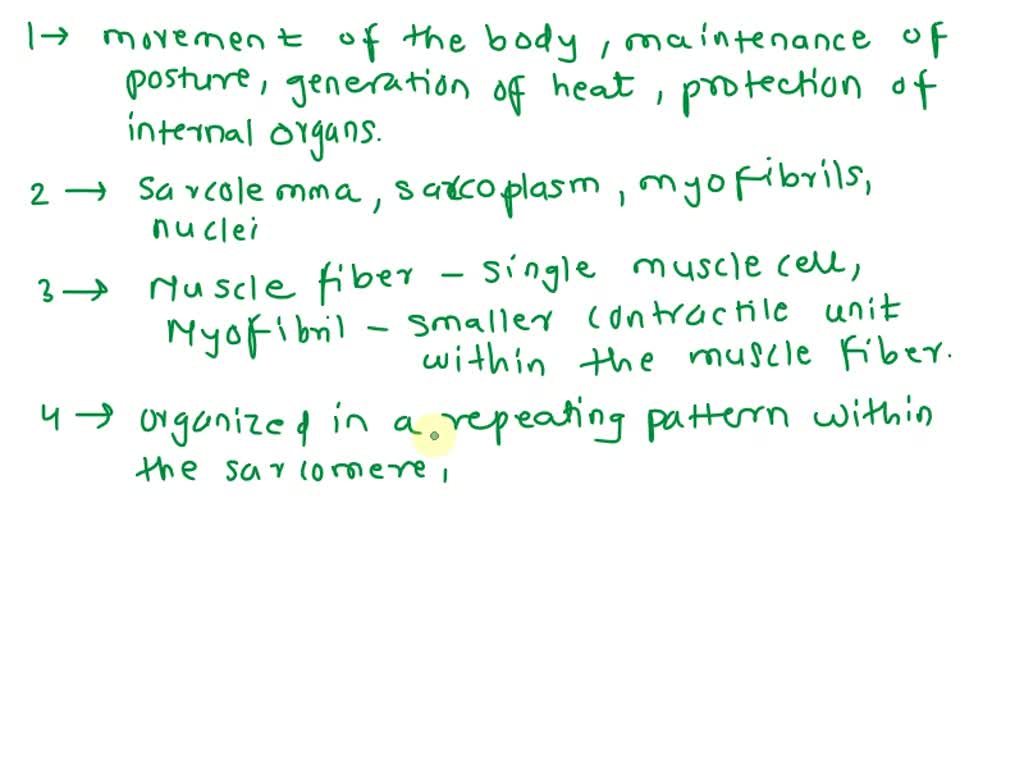 1→ movement of the body, maintenance of
posture, generation of heat, protection of
internal organs.
2 → Sarcolemma, sarcoplasm, myofibrils,
nuclei
3 → Muscle fiber - single muscle cell,
Myofibril - smaller contractile unit
within the muscle fiber.
4 → organized in a repeating pattern within
the sarcomere,